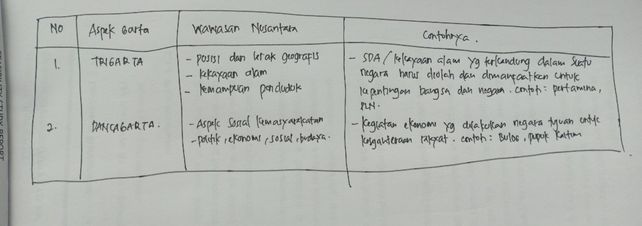 NO Aspek Gatra Wawasan Nusantara Contohnya.
1. TRIGATRA - posisi dan letak geografis
- kekayaan alam
- kemampuan penduduk
- SDA / kekayaan alam yg terkandung dalam suatu
negara harus diolah dan dimanfaatkan untuk
kepentingan bangsa dan negara. contoh: pertamina,
PLN.
2. PANCAGATRA. - Aspek Sosial kemasyarakatan
- politik, ekonomi, sosial, budaya.
- Kegiatan ekonomi yg dilakukan negara tujuan untuk
kesejahteraan rakyat. contoh: Bulog, pupuk kaltim